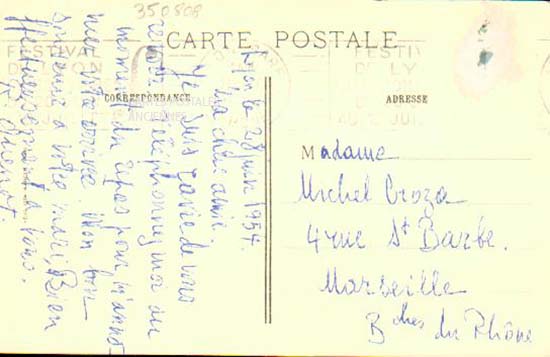 350808
CARTE POSTALE
FESTIVAL
DE LYON
FESTIV
DE LY
CORRESPONDANCE
ADRESSE
CARTES POSTALES
ANCIENNES
Lyon le 28 juin 1954.
Ma chère amie.
Je suis ravie de vous
revoir. Téléphonez moi au
moment du repas pour m'annon-
cer votre arrivée. Mon bon
souvenir à votre mari, Bien
affectueusement à vous.
Madame
Michel Croza
4 rue St Barbe.
Marseille
Bches du Rhône